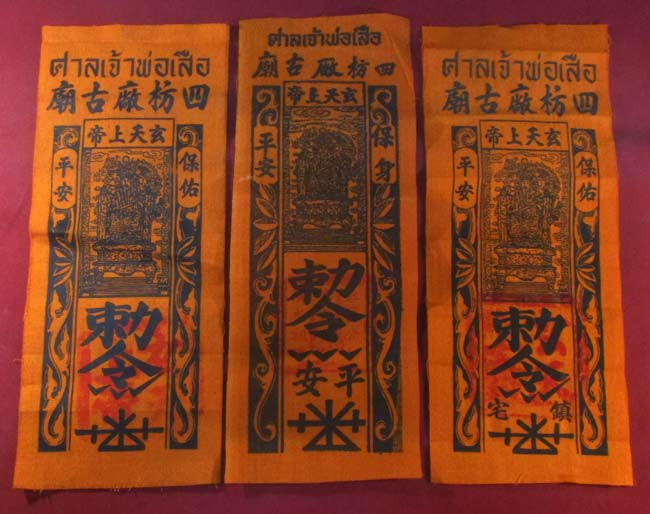 ศาลเจ้าพ่อเสือ
四枋廠古廟
玄天上帝
保佑
平安
勅令
ศาลเจ้าพ่อเสือ
四枋廠古廟
玄天上帝
保身
平安
勅令
平安
ศาลเจ้าพ่อเสือ
四枋廠古廟
玄天上帝
保佑
平安
勅令
鎮宅